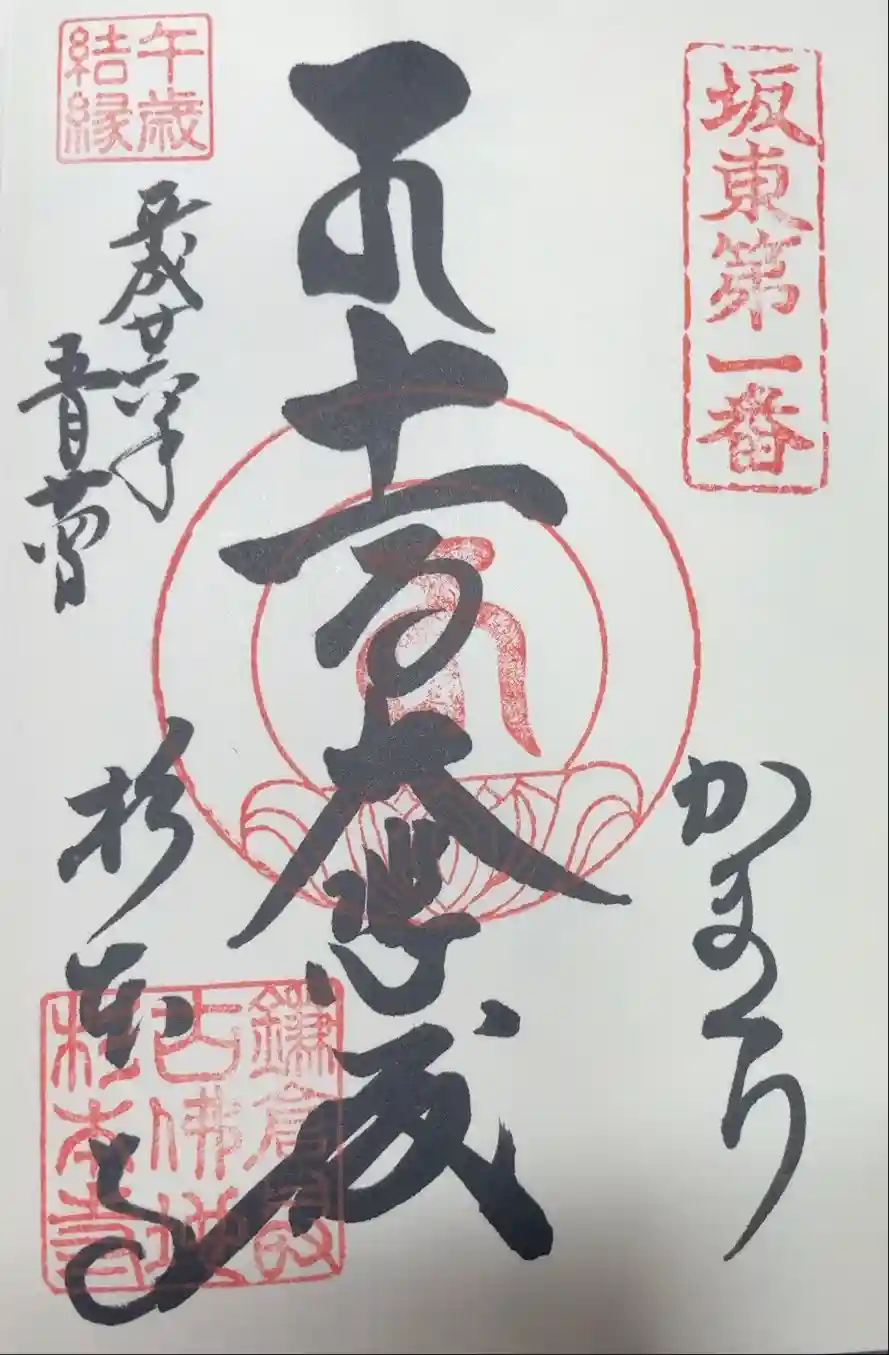 坂東第一番
かまくら
十一面大悲殿
午歳
結縁
平成廿六年
五月
杉本寺
鎌倉最
古佛地
杉本寺